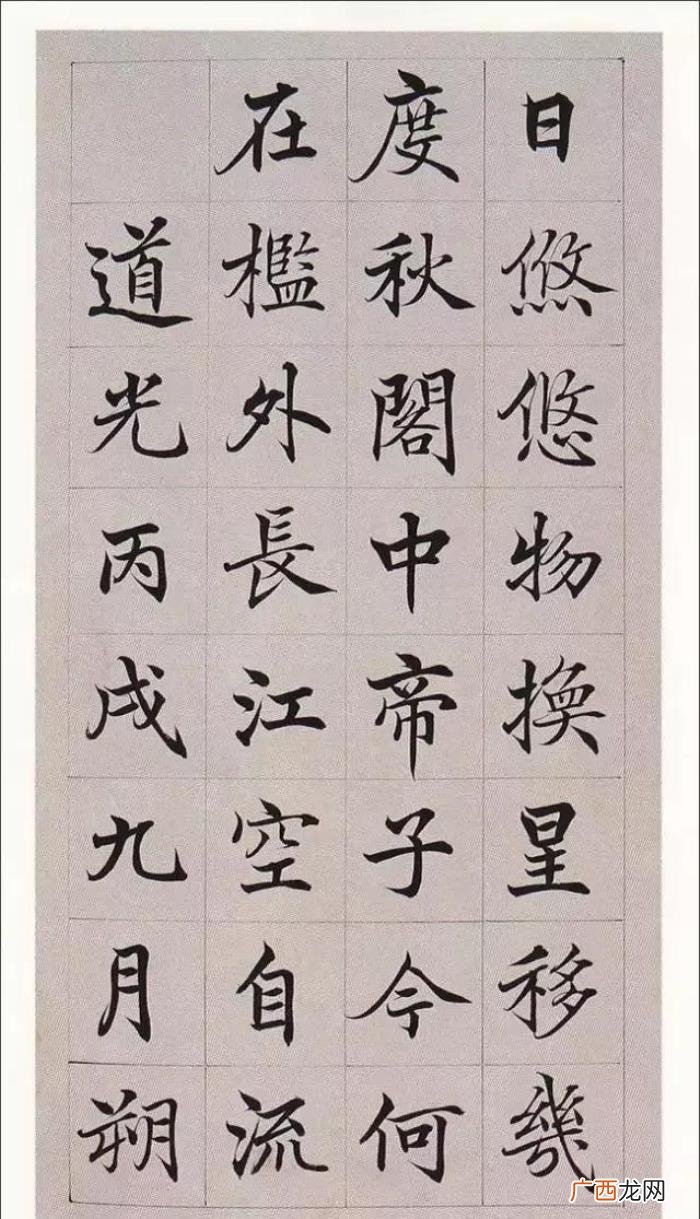 日悠悠物換星移幾
度秋閣中帝子今何
在檻外長江空自流
道光丙戌九月朔
广西龙网